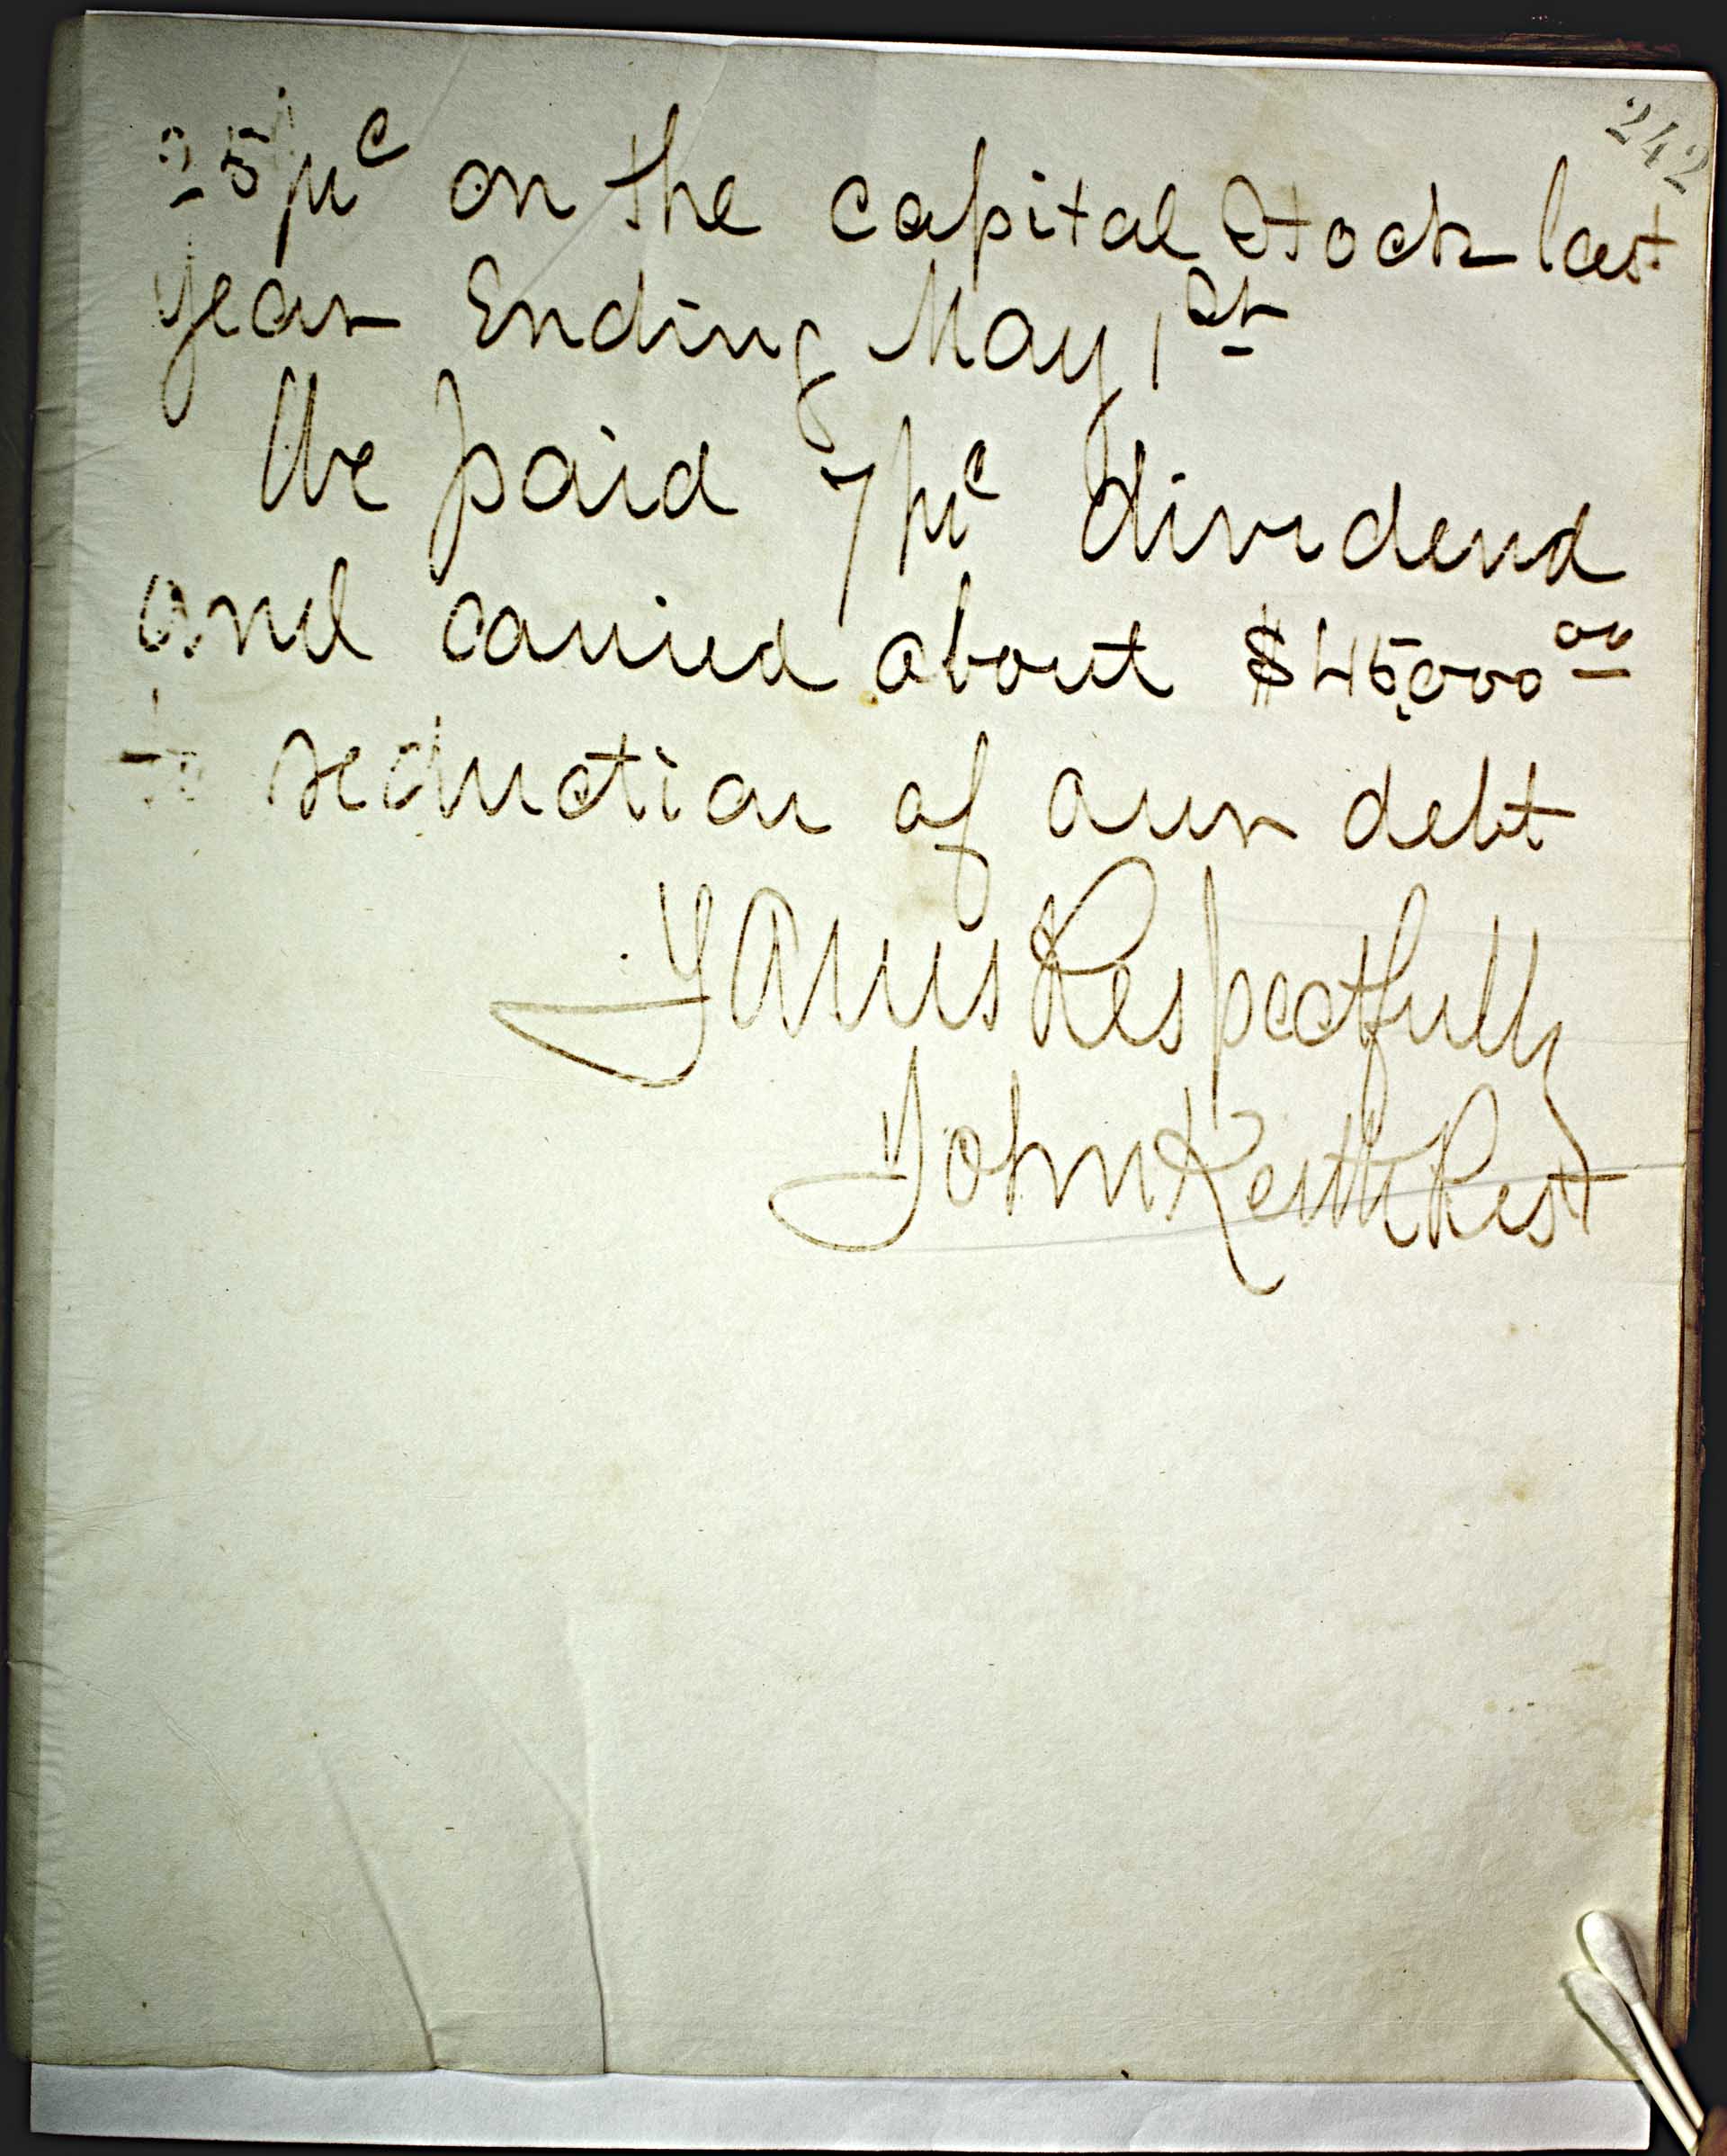 242
25 prc on the capital Stock last
year Ending May 1st
We paid 7 prc dividend
and carried about $45,000 00
to reduction of our debt
Yours Respectfully
John Keith Prest